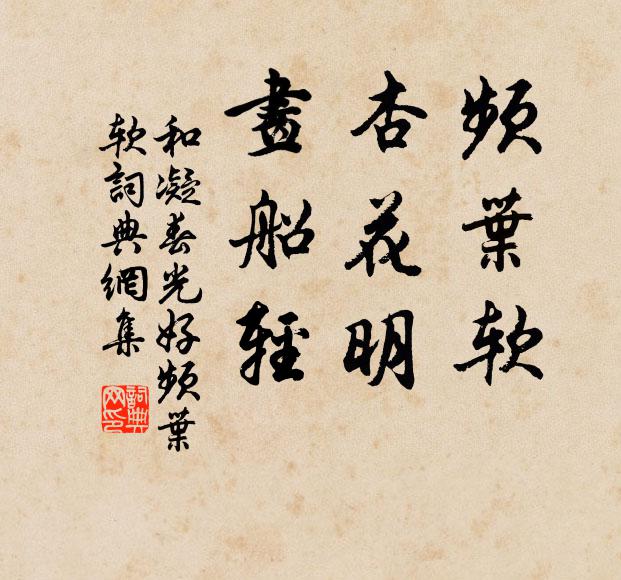 頻葉軟
杏花明
畫船輕
和凝春光好頻葉
軟詞典網集
詞典
网印